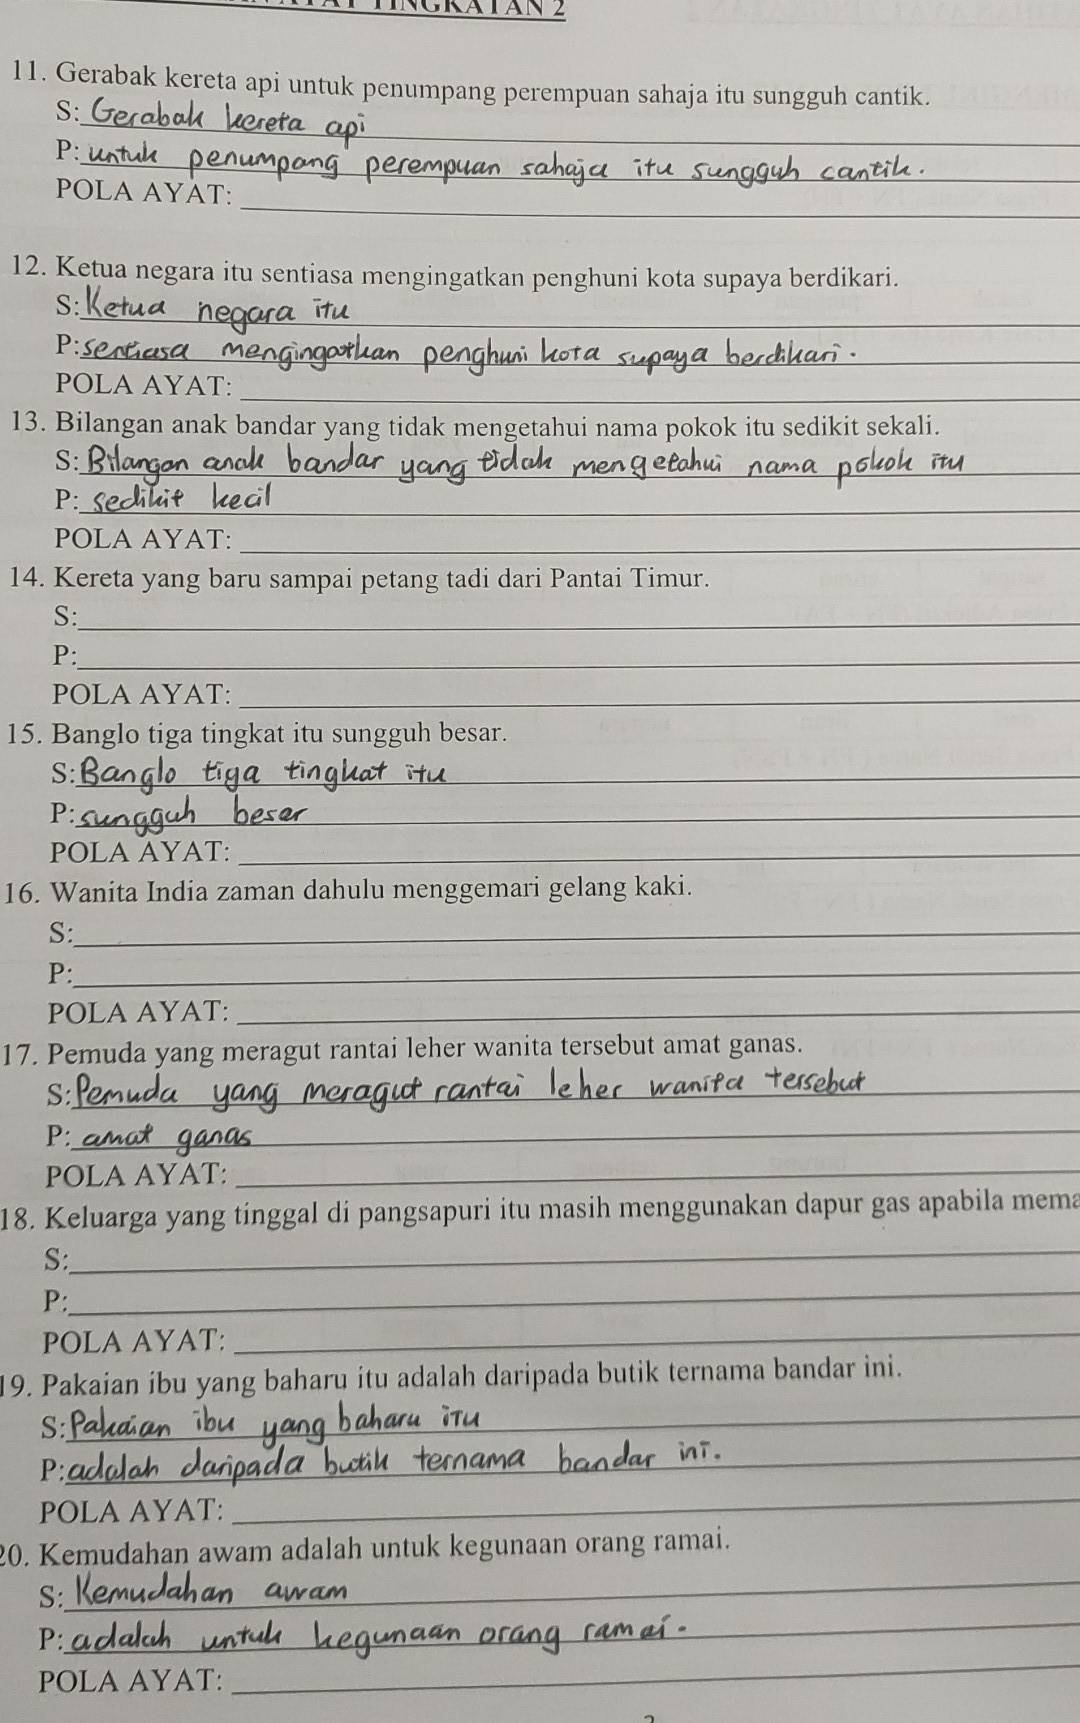 TINGKATAN 2
11. Gerabak kereta api untuk penumpang perempuan sahaja itu sungguh cantik.
S: Gerabak kereta api
P: untuk penumpang perempuan sahaja itu sungguh cantik.
POLA AYAT:
12. Ketua negara itu sentiasa mengingatkan penghuni kota supaya berdikari.
S: Ketua negara itu
P: sentiasa mengingatkan penghuni kota supaya berdikari.
POLA AYAT:
13. Bilangan anak bandar yang tidak mengetahui nama pokok itu sedikit sekali.
S: Bilangan anak bandar yang tidak mengetahui nama pokok itu
P: sedikit kecil
POLA AYAT:
14. Kereta yang baru sampai petang tadi dari Pantai Timur.
S:
P:
POLA AYAT:
15. Banglo tiga tingkat itu sungguh besar.
S: Banglo tiga tingkat itu
P: sungguh beser
POLA AYAT:
16. Wanita India zaman dahulu menggemari gelang kaki.
S:
P:
POLA AYAT:
17. Pemuda yang meragut rantai leher wanita tersebut amat ganas.
S: Pemuda yang meragut rantai leher wanita tersebut
P: amat ganas
POLA AYAT:
18. Keluarga yang tinggal di pangsapuri itu masih menggunakan dapur gas apabila mema
S:
P:
POLA AYAT:
19. Pakaian ibu yang baharu itu adalah daripada butik ternama bandar ini.
S: Pakaian ibu yang baharu itu
P: adalah daripada butik ternama bandar ini.
POLA AYAT:
20. Kemudahan awam adalah untuk kegunaan orang ramai.
S: Kemudahan awam
P: adalah untuk kegunaan orang ramai.
POLA AYAT: